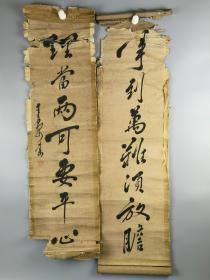 事到萬難須放膽
理當兩可要平心